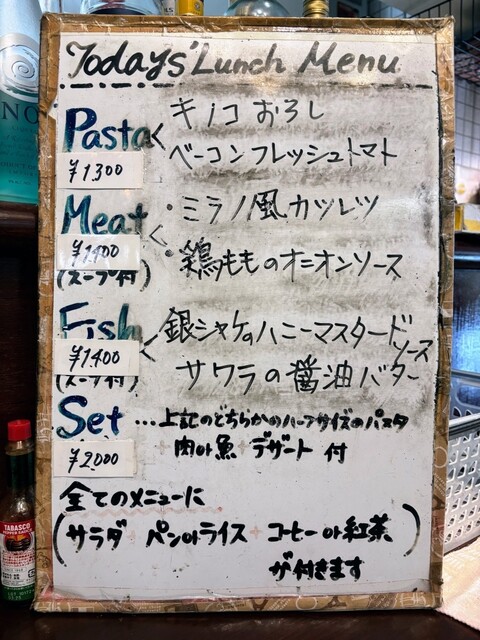 Todays' Lunch Menu
Pasta
¥1300
キノコおろし
ベーコンフレッシュトマト
Meat
¥1400
(スープ付)
・ミラノ風カツレツ
・鶏もものオニオンソース
Fish
¥1400
(スープ付)
銀シャケのハニーマスタードソース
サワラの醤油バター
Set
¥2000
…上記のどちらかのハーフサイズのパスタ
+ 肉or魚 + デザート 付
全てのメニューに
(サラダ + パンorライス + コーヒーor紅茶)
が付きます
TABASCO